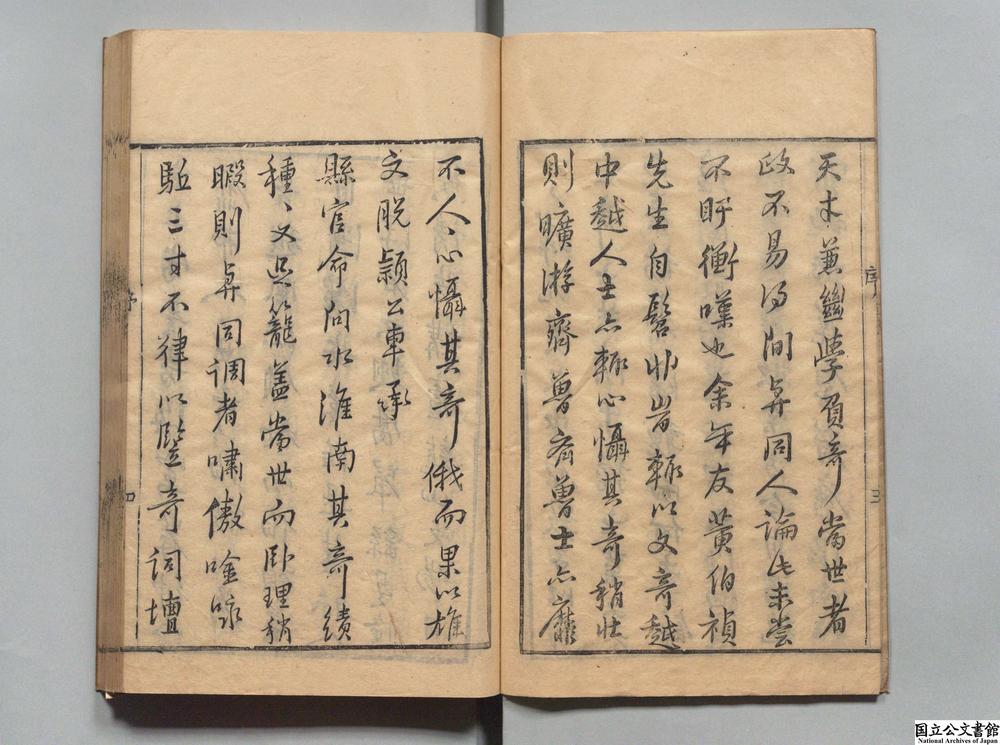 天才兼繇學負奇當世者
政不易得間與同人論此未嘗
不盱衡嘆也余年友黄伯禎
先生自髫丱旹輙以文奇越
中越人士亦輙心懾其奇稍壯
則曠游齊魯齊魯士亦靡
序
三
不人人心懾其奇俄而果以雄
文脱潁公車承
縣官命問水淮南其奇績
種種又足籠盖當世而卧理稍
暇則與同調者嘯傲唫咏
駈三寸不律以豎奇詞壇
序
四
国立公文書館
National Archives of Japan